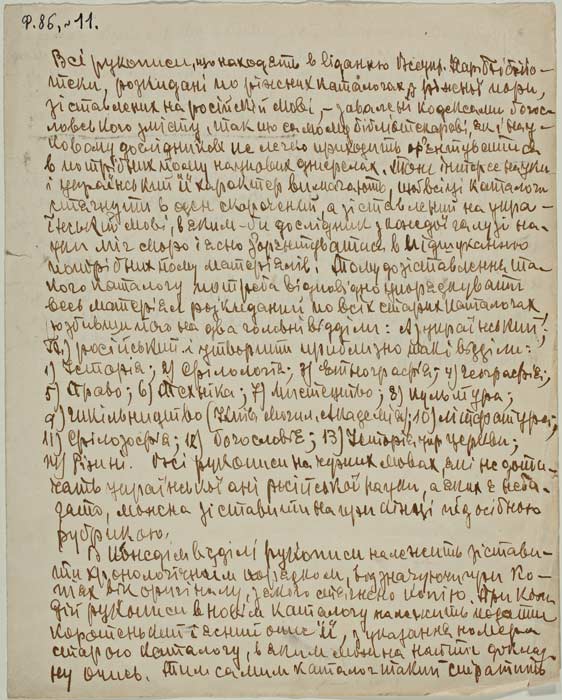 Ф. 86, № 11.
Всі рукописи, що находять в віданню Всеукр. Нар. Бібліо-
теки, розкидані по ріжних каталогах, ріжної пори,
зіставлених на російскій мові, – завалені кодексами богос-
ловського змісту, так що самому бібліотекареві, як і нау-
ковому дослідникові не легко приходить орентуватися
в потрібних йому наукових джерелах. Тому інтерес науки
і український її характер вимагають, щоб всі ці каталоги
стягнути в один скорочений, а зіставлений на укра-
їнський мові, в яким-би дослідник з кождої галузі на-
уки міг скоро і ясно зорєнтуватись в підшуканню
потрібних йому матеріялів. Тому до зіставлення та-
кого каталогу потреба відповідно упорядкувати
весь матеріял розкиданий по всіх старих каталогах,
розбивши його на два головні відділи: А) український;
Б) російський і утворити приблизно такі відділи:
1) Історія; 2) Фільологія; 3) Етнографія; 4) Географія;
5) Право; 6) Техніка; 7) Мистецтво; 8) Культура;
9) Шкільництво (Київ. Могил. Академія); 10) Література;
11) Фільозофія; 12) Богословіє; 13) Історія укр. церкви;
14) Ріжні. Всі рукописи на чужих мовах, які не доти-
чать української ані російської науки, а яких є неба-
гато, можна зіставити на при кінці під осібною
рубрикою.
В кождім відділі рукописи належить зістави-
ти хронологічним порядком, відзначуючи при ко-
піях вік оригіналу, з якого стягнено копію. При кож-
дій рукописи в новім каталогу належить подати
коротенький і ясний опис її, з указання номера
старого каталогу, в яким можна найти доклад-
ну опись. Тим самим каталог такий стратить